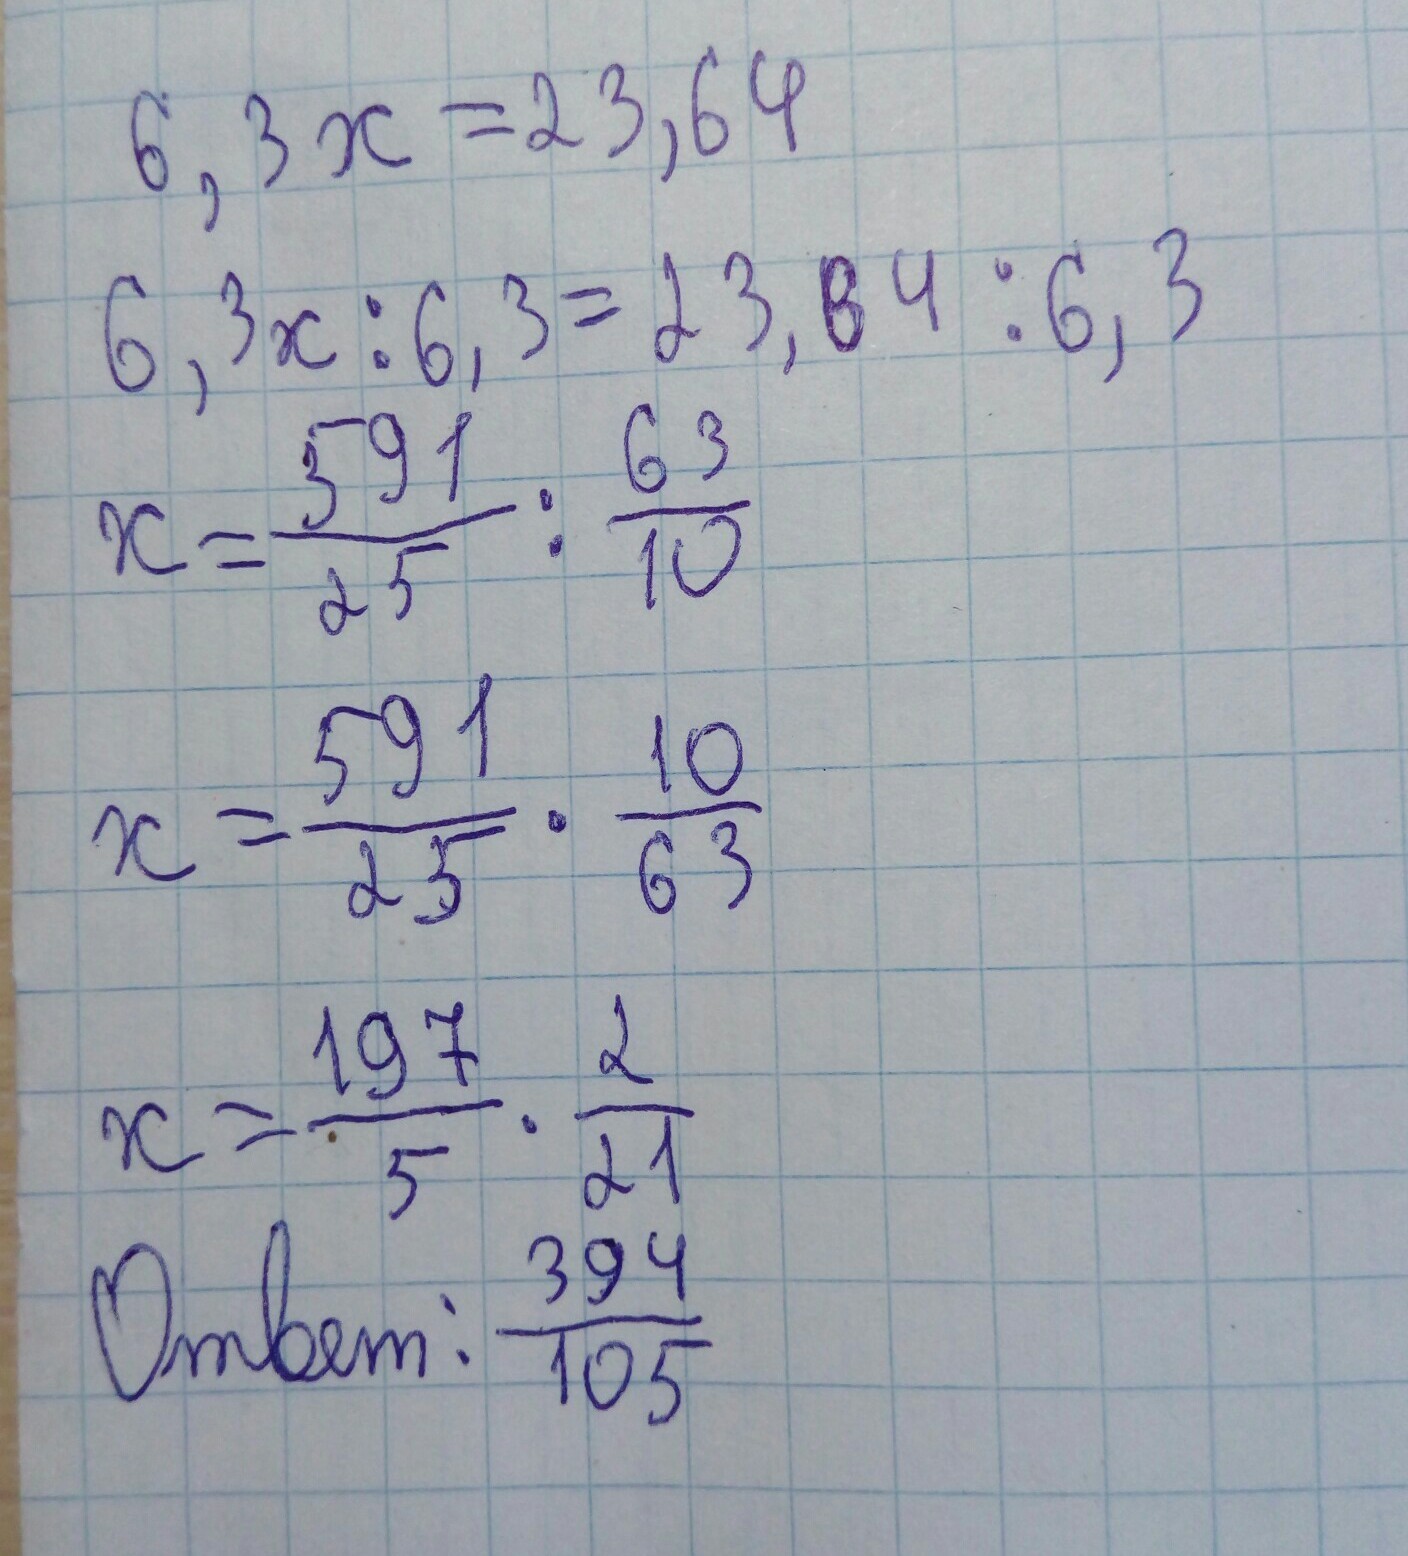 6,3x=23,64
6,3x:6,3=23,64:6,3
x=591/25:63/10
x=591/25·10/63
x=197/5·2/21
Ответ: 394/105